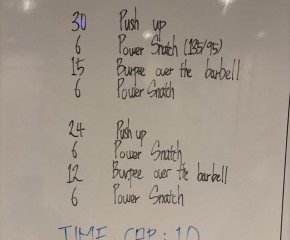 30 Push up
6 Power Snatch (135/95)
15 Burpee over the barbell
6 Power Snatch
24 Push up
6 Power Snatch
12 Burpee over the barbell
6 Power Snatch
TIME CAP: 10